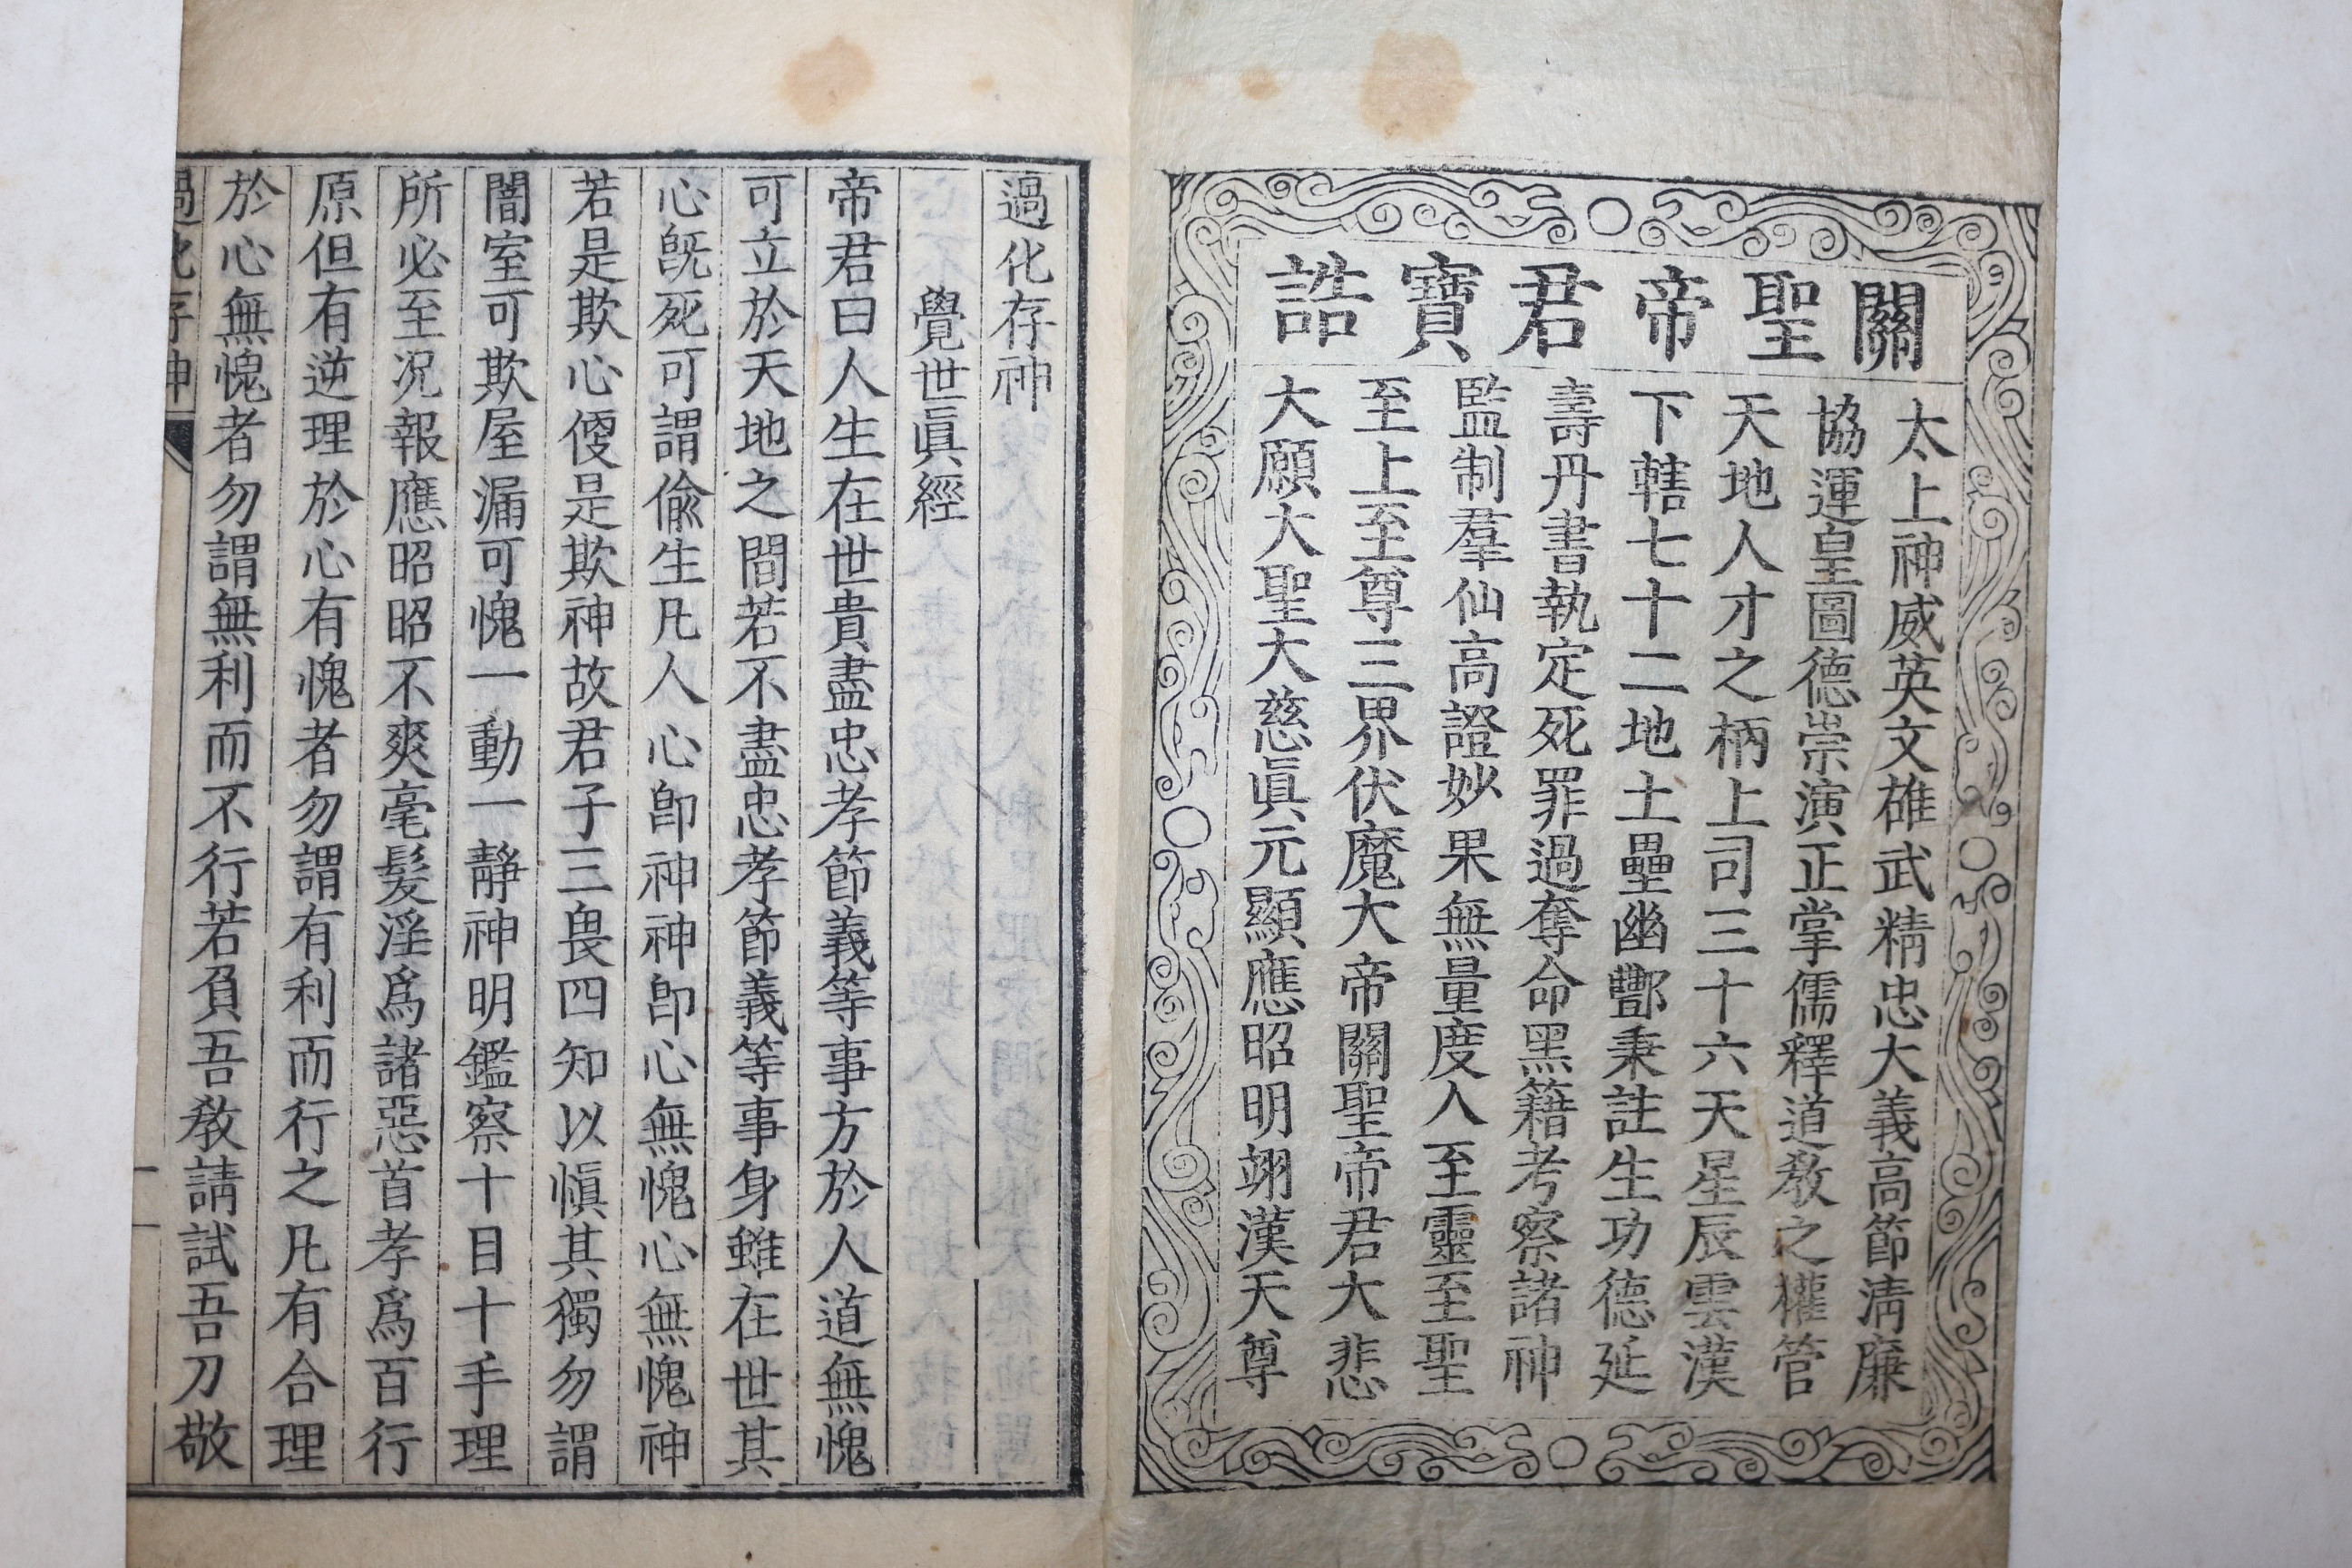 關聖帝君寶誥
太上神威英文雄武精忠大義高節淸廉
協運皇圖德崇演正掌儒釋道敎之權管
天地人才之柄上司三十六天星辰雲漢
下轄七十二地土壘幽酆秉註生功德延
壽丹書執定死罪過奪命黑籍考察諸神
監制羣仙高證妙果無量度人至靈至聖
至上至尊三界伏魔大帝關聖帝君大悲
大願大聖大慈眞元顯應昭明翊漢天尊
過化存神
覺世眞經
帝君曰人生在世貴盡忠孝節義等事方於人道無愧
可立於天地之間若不盡忠孝節義等事身雖在世其
心旣死可謂偸生凡人心卽神神卽心無愧心無愧神
若是欺心便是欺神故君子三畏四知以愼其獨勿謂
闇室可欺屋漏可愧一動一靜神明鑑察十目十手理
所必至况報應昭昭不爽毫髮淫爲諸惡首孝爲百行
原但有逆理於心有愧者勿謂有利而行之凡有合理
於心無愧者勿謂無利而不行若負吾敎請試吾刀敬
過化存神